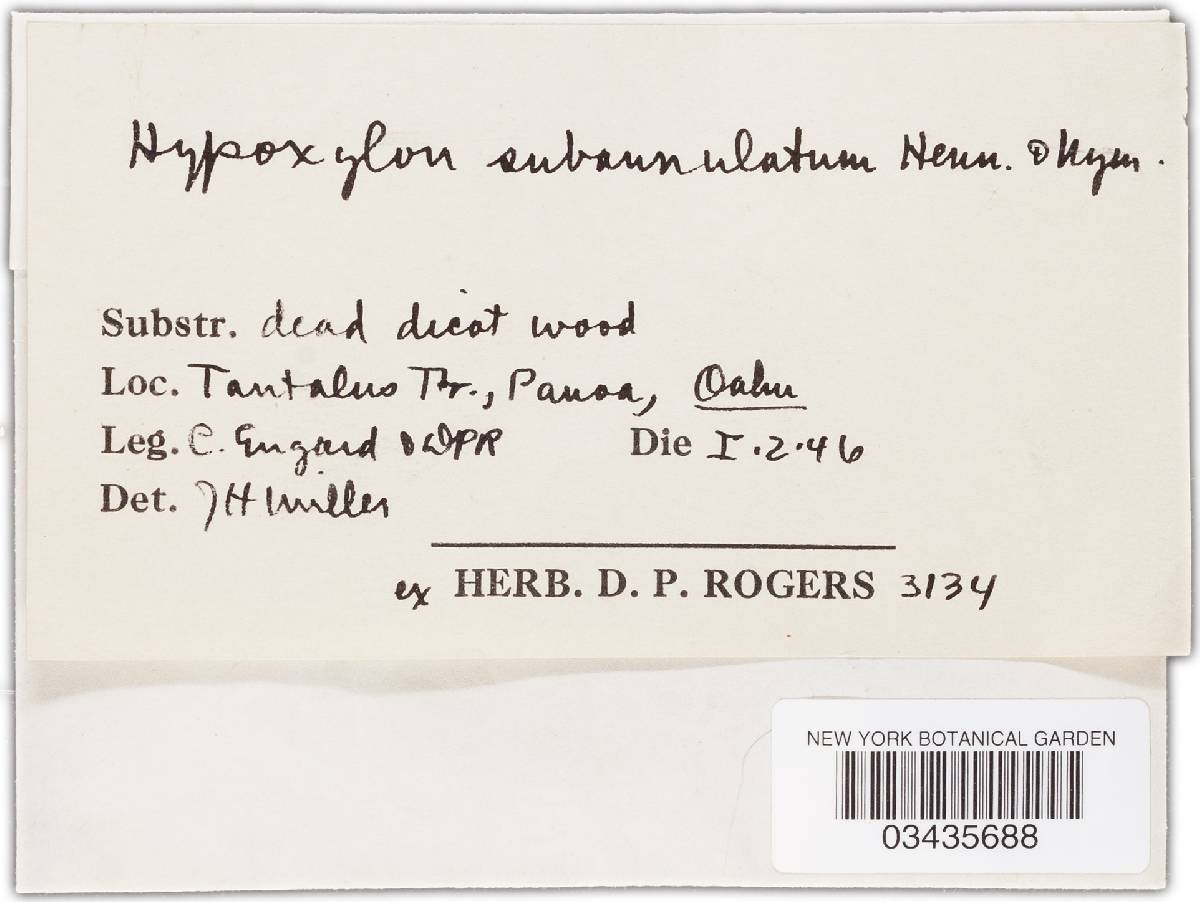 Hypoxylon subannulatum Henn. & Nym.
Substr. dead dicot wood
Loc. Tantalus Tr., Pauoa, Oahu
Leg. C. Engard & DPR Die I.2.46
Det. JH Miller
ex HERB. D. P. ROGERS 3134
NEW YORK BOTANICAL GARDEN
03435688